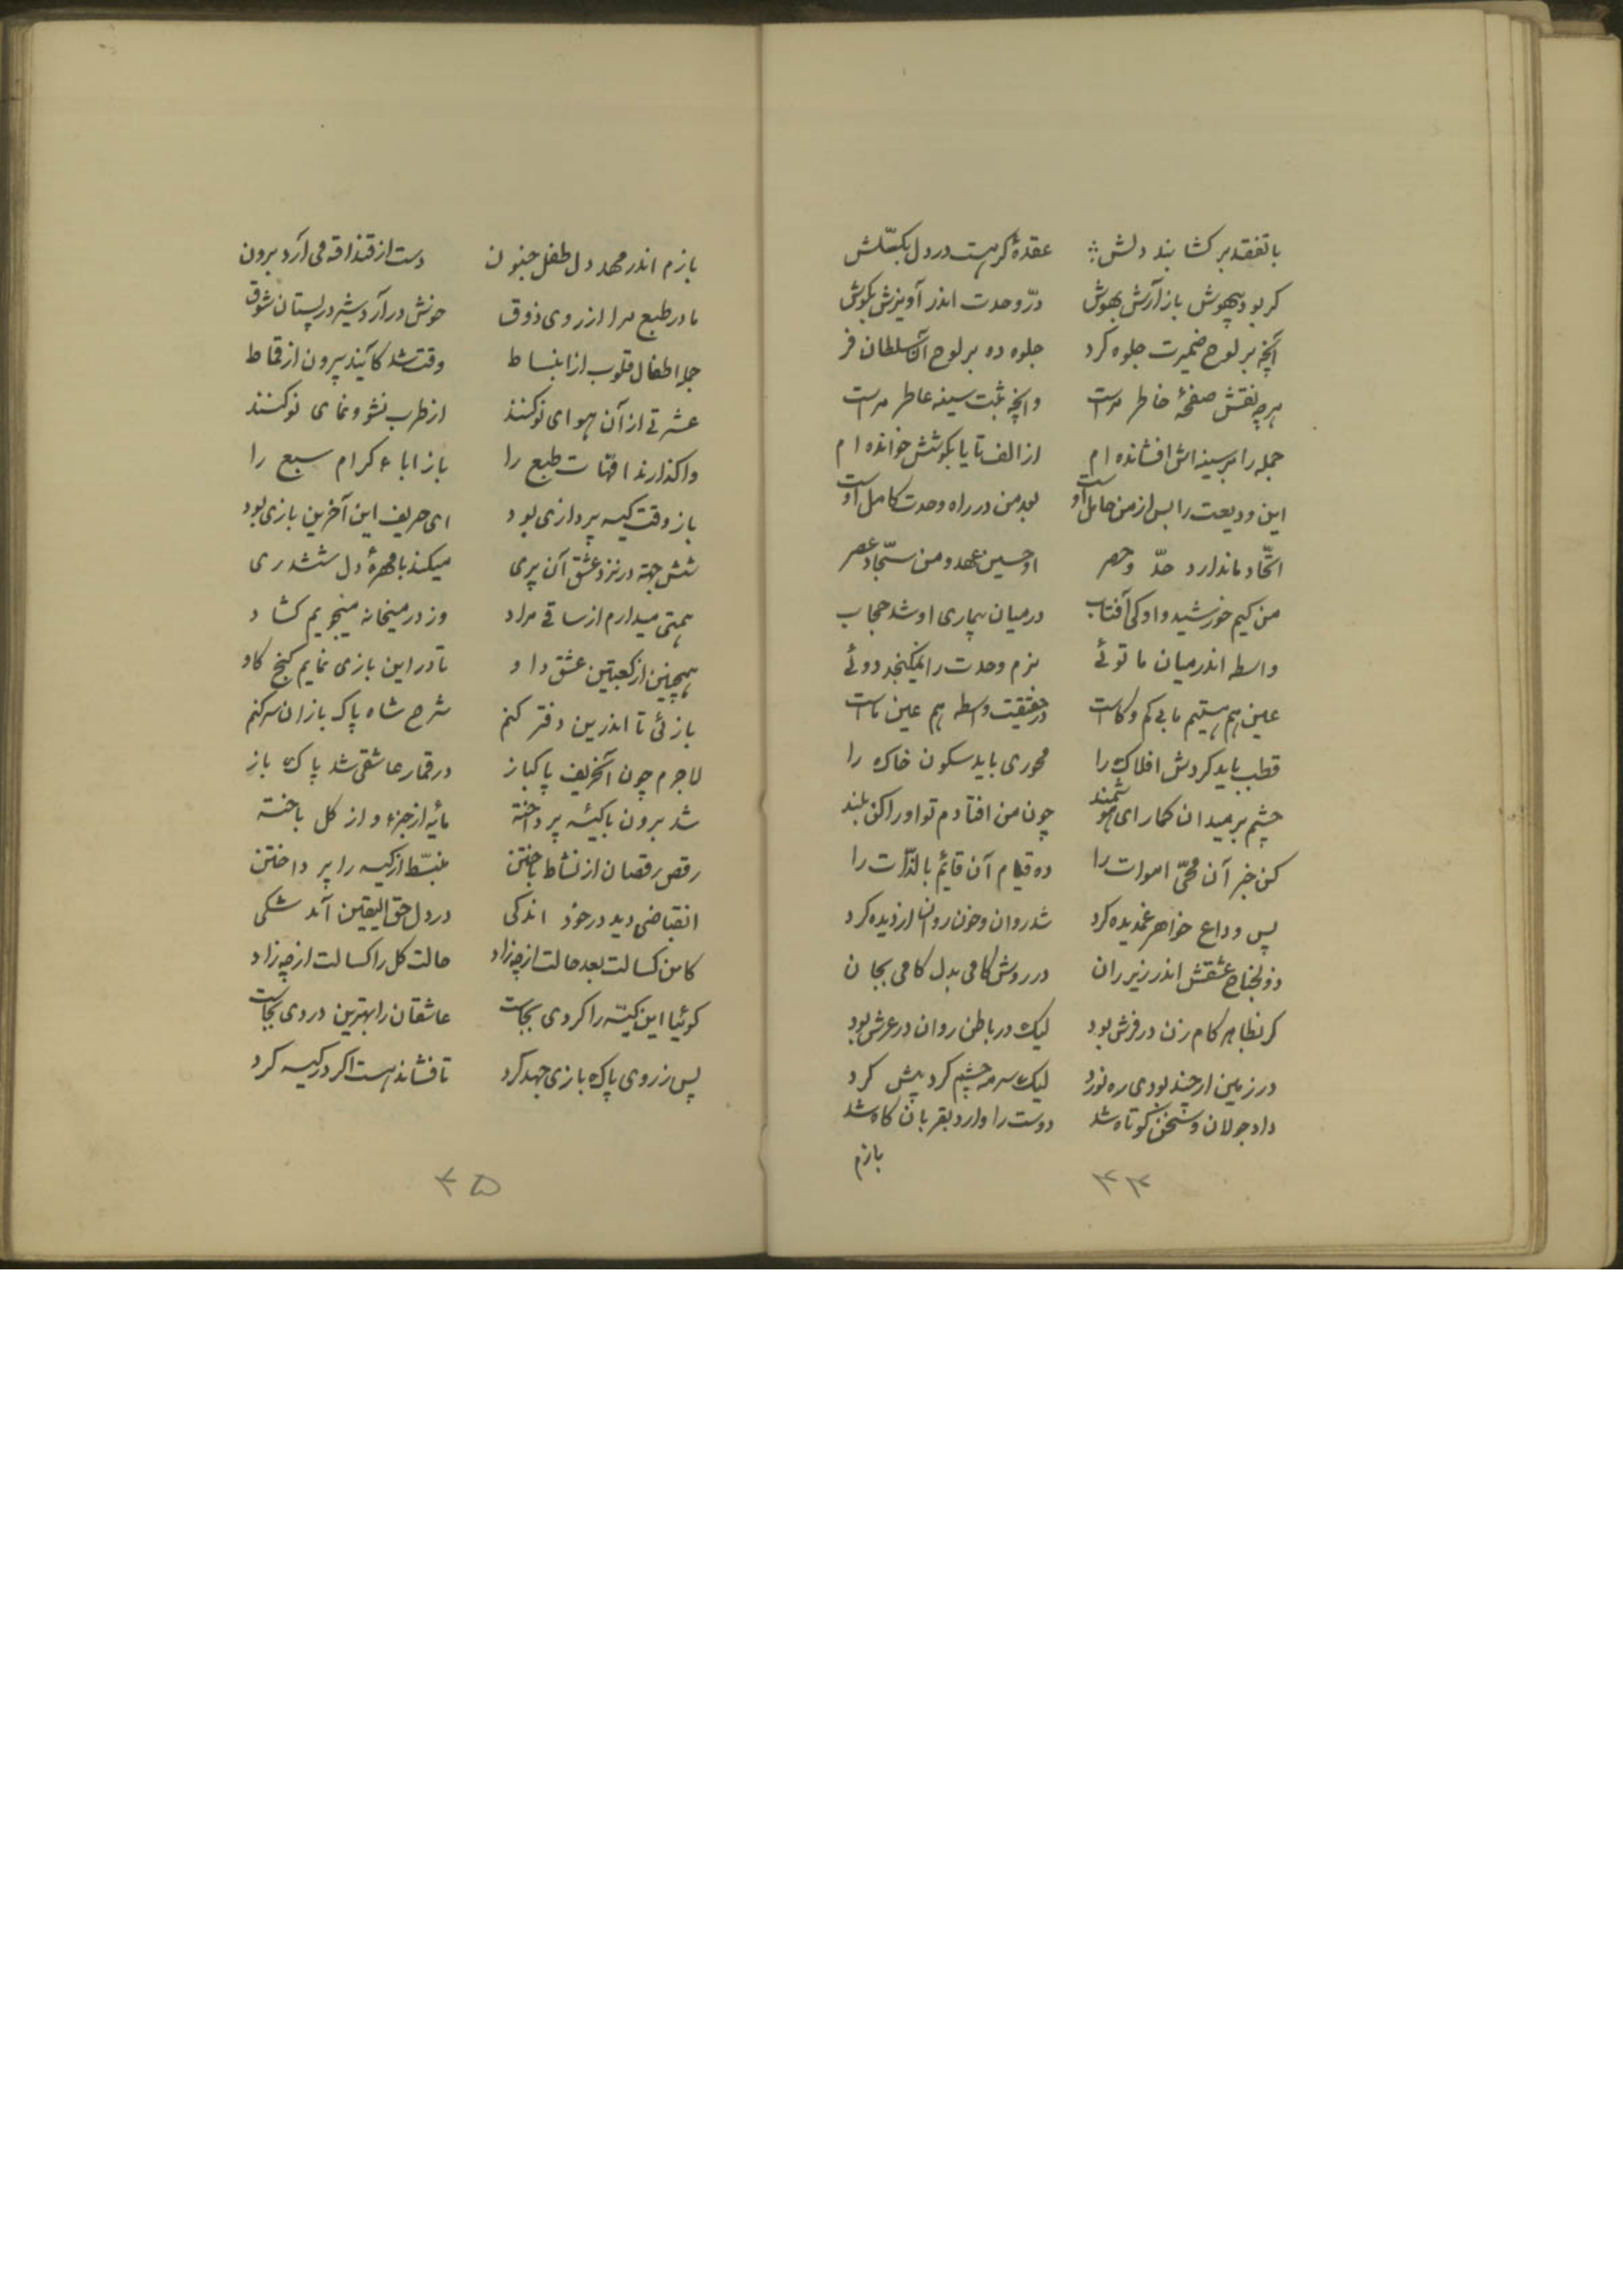 با تفقد بر کشا بند دلش :: عقدهٔ کر هست در دل بکسلش
کر بود بیهوش باز آرش بهوش درّ وحدت اندر آویزش بکوش
آنچه بر لوح ضمیرت جلوه کرد جلوه ده بر لوح آن سلطان فر
هرچه نقش صفحهٔ خاطر مراست وانچه ثبت سینه عاطر مراست
جمله را بر سینه اش افشانده ام از الف تا یا بکوشش خوانده ام
این ودیعت را پس از من حامل اوست بعد من در راه وحدت کامل اوست
اتّحاد ما ندارد حدّ و حصر او حسین عهد و من سجّاد عصر
من کیم خورشید و او کی آفتاب در میان بیماری او شد حجاب
واسطه اندر میان ما توئی بزم وحدت را نمیکنجد دوئی
عین هم هستیم ما بی کم و کاست در حقیقت واسطه هم عین ماست
قطب باید کردش افلاک را محوری باید سکون خاک را
چشم بر میدان کمار ای هوشمند چون من افتادم تو او را کن بلند
کن خبر آن محیّ اموات را ده قیام آن قائم بالذّات را
پس وداع خواهر غمدیده کرد شد روان و خون روان از دیده کرد
ذوالجناح عشقش اندر زیر ران در روش کامی بدل کامی بجان
کر بظاهر کام زن در فرش بود لیک در باطن روان در عرش بود
در زمین ار چند بودی ره نورد لیک سرمه چشم کرد پیش کرد
داد جولان و سخن کوتاه شد دوست را وارد بقربان کاه شد
بازم
۴۴
بازم اندر مهد دل طفل جنون دست از قنداقه می آرد برون
مادر طبع مرا از روی ذوق خونش در آرد شیر در پستان شوق
جمله اطفال قلوب از انبساط وقت شد کآیند بیرون از قماط
عشرتی از آن هوای نو کنند از طرب نشو و نمای نو کنند
واکذارند امّهات طبع را باز اباء کرام سبع را
باز وقت کیسه پردازی بود ای حریف این آخرین بازی بود
شش جهة در نرد عشق آن پری میکند با مهرهٔ دل ششدری
همّتی میدارم از ساقی مراد وز در میخانه میجویم کشاد
همچنین از کعبتین عشق داو تا در این بازی نمایم کنج کاو
بازئی تا اندرین دفتر کنم شرح شاه پاک بازان سر کنم
لاجرم چون آن حریف پاکباز در قمار عاشقی شد پاک باز
شد برون با کیسهٔ پرداخته مایه از جزء و از کل باخته
رقص رقصان از نشاط باختن منبسّط از کیسه را پرداختن
انقباضی دید در خود اندکی در دل حق الیقین آمد شکی
کامن کسالت بعد حالت از چه زاد حالت کل را کسالت از چه زاد
کوئیا این کیسه را کردی بجاست عاشقان را بهترین دردی بجاست
پس ز روی پاک بازی جهد کرد تا فشاند هست اکر در کیسه کرد
۴۵